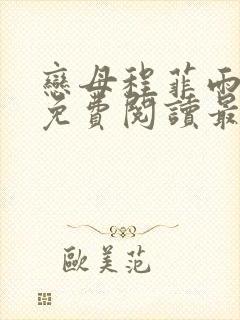 戀母程菲雨
免費閱讀最
歐美范